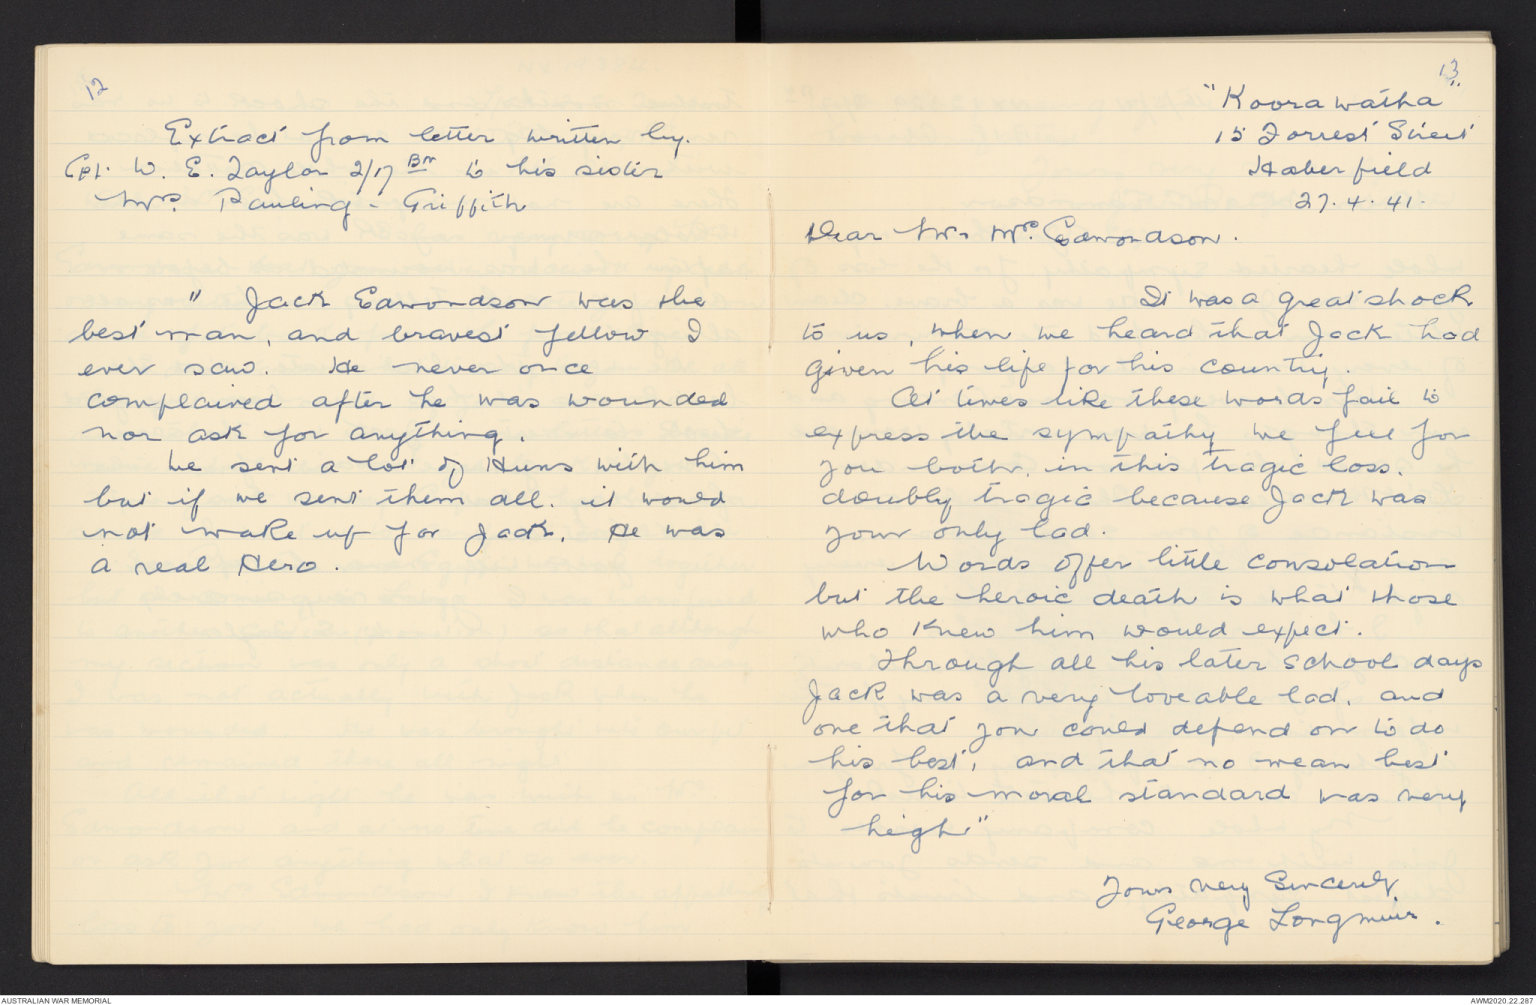 12
Extract from letter written by.
Cpl. W. E. Taylor 2/17 Bn to his sister
Mrs. Pauling - Griffith
" Jack Edmondson was the
best man, and bravest fellow I
ever saw. He never once
complained after he was wounded
nor ask for anything.
he sent a lot of Huns with him
but if we sent them all. it would
not make up for Jack. He was
a real Hero.
13
"Koorawatha"
15 Forrest Street
Haberfield
27.4.41.
Dear Mr. Mrs. Edmondson.
It was a great shock
to us, when we heard that Jack had
given his life for his country.
At times like these words fail to
express the sympathy we feel for
you both, in this tragic loss.
doubly tragic because Jack was
your only lad.
Words offer little consolation
but the heroic death is what those
who knew him would expect.
Through all his later school days
Jack was a very loveable lad. and
one that you could depend on to do
his best, and that no mean best
for his moral standard was very
high"
Yours very Sincerely
George Longmuir.
AUSTRALIAN WAR MEMORIAL
AWM2020.22.267